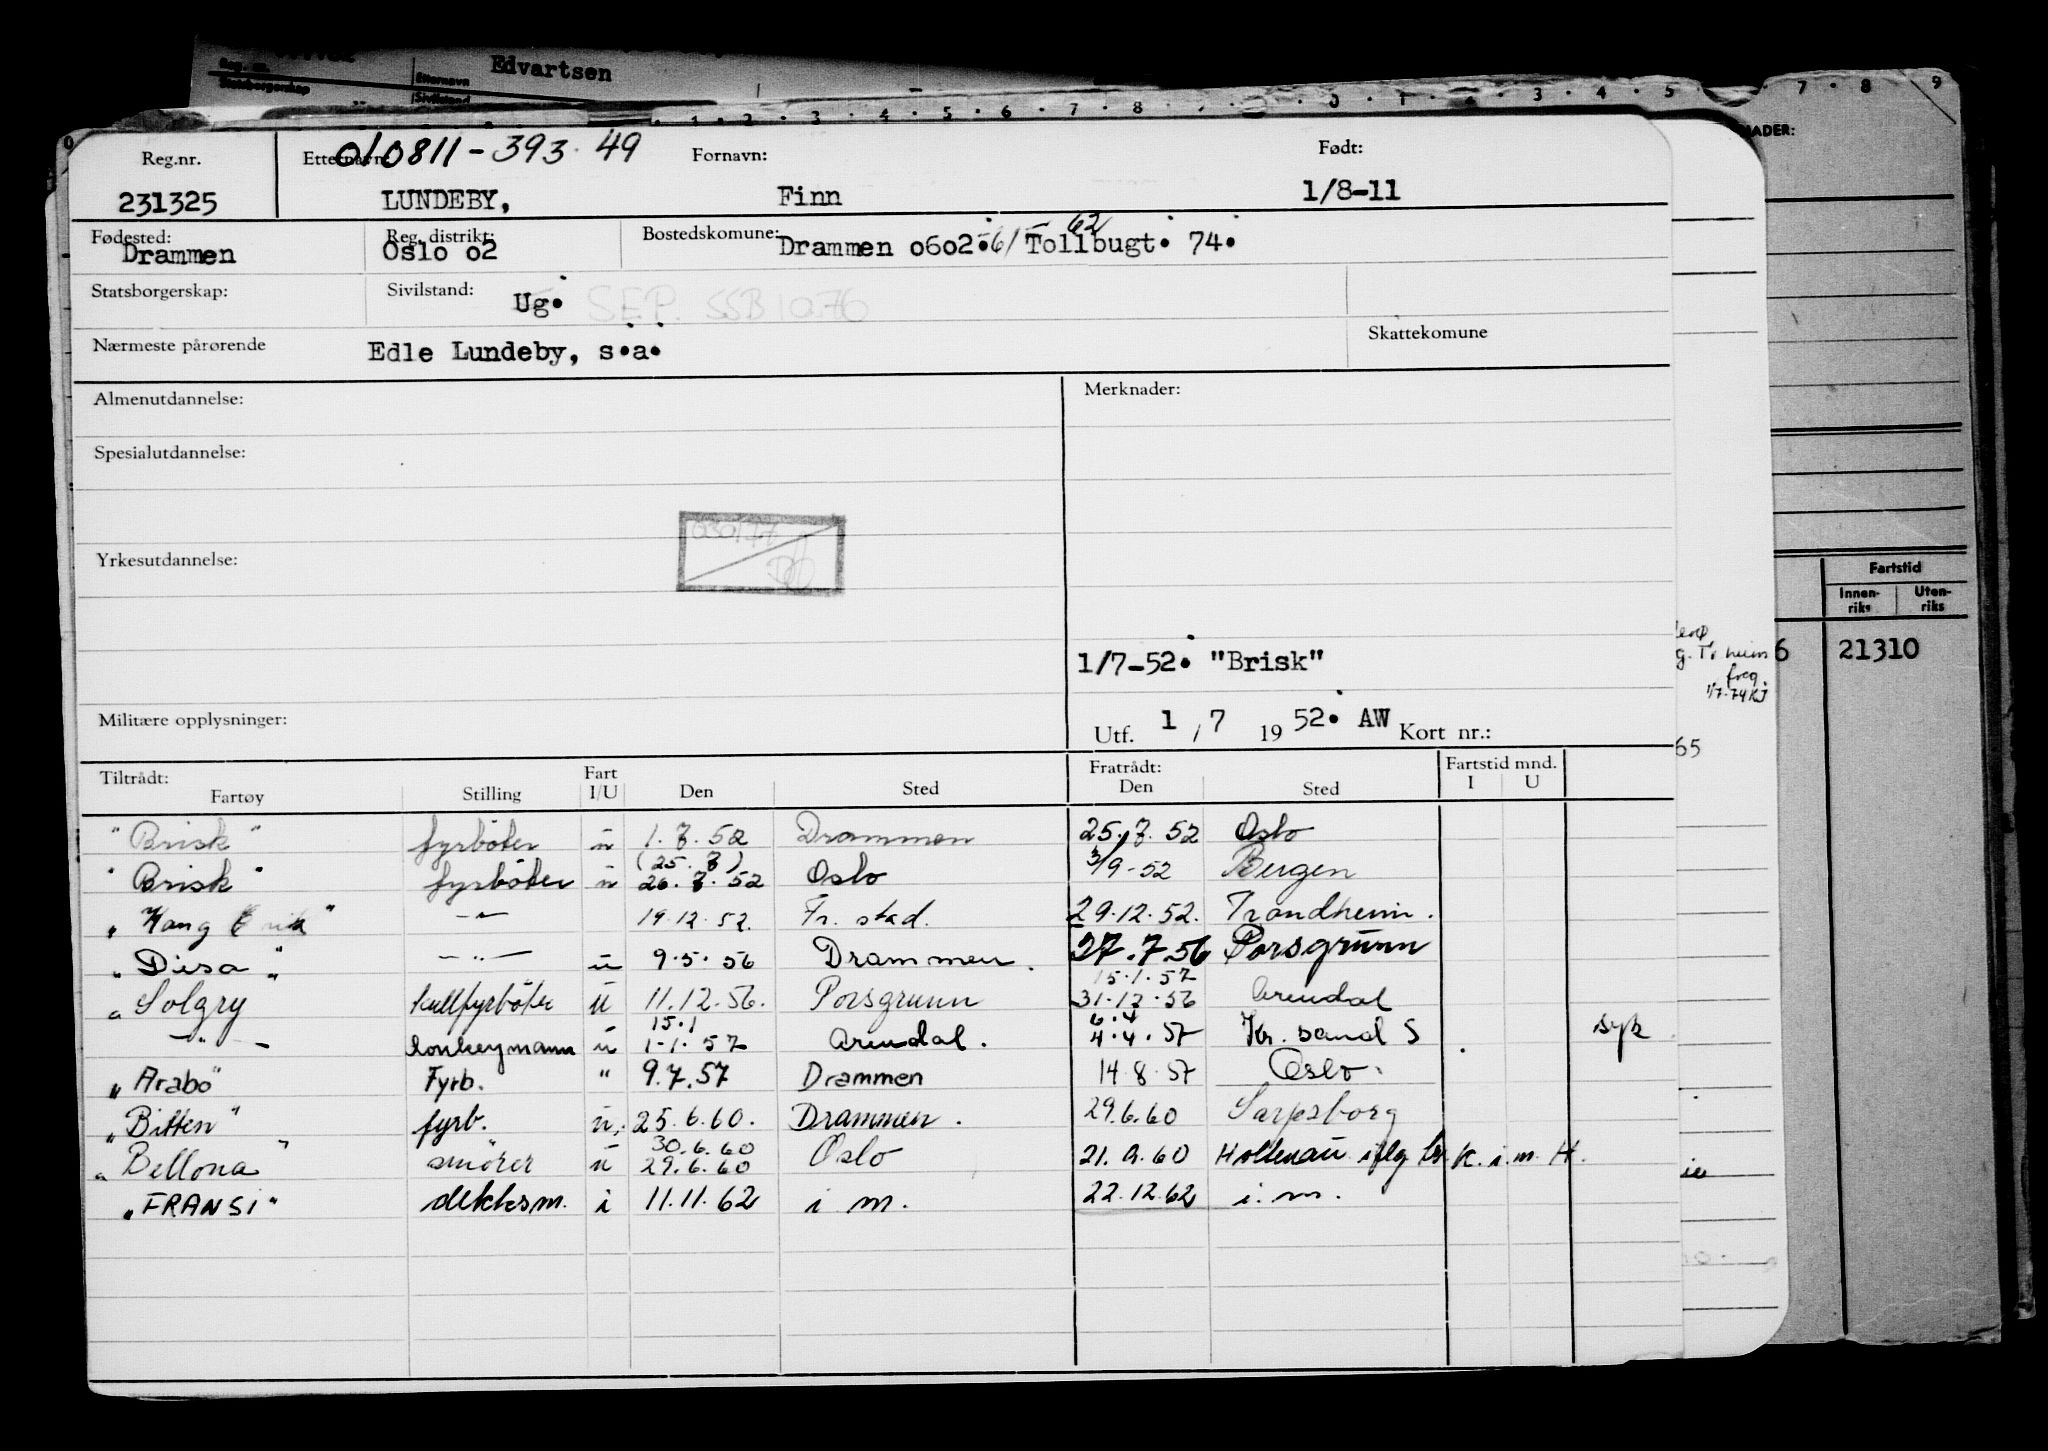 Edvartsen
Reg. nr. Etternavn
Statsborgerskap Sivilstand
1 · 2 · 3 · 4 · 5 · 6 · 7 · 8 · 0 · 1 · 2 · 3 · 4 · 5 · 7 · 8 · 9
Reg.nr. Etternavn: 010811-393.49 Fornavn: Født:
231325 LUNDEBY, Finn 1/8-11
Fødested: Reg. distrikt: Bostedskomune: 62
Drammen Oslo o2 Drammen o6o2. 61 Tollbugt. 74.
Statsborgerskap: Sivilstand: Ug. SEP. SSB 1076
Nærmeste pårørende Edle Lundeby, s.a. Skattekomune
Almenutdannelse: Merknader:
Spesialutdannelse:
Yrkesutdannelse:
1/7-52. "Brisk"
Militære opplysninger: Utf. 1 / 7 19 52. AW Kort nr.:
Tiltrådt: Fart Fratrådt: Fartstid mnd.
Fartøy Stilling I/U Den Sted Den Sted I U
"Brisk" fyrbøter u 1.7.52 Drammen 25.7.52 Oslo
(25.7)
"Brisk" fyrbøter u 26.7.52 Oslo 3/9-52 Bergen
"Kong Erik" -"- 19.12.52. Fr. stad. 29.12.52. Trondheim.
"Disa" -"- u 9.5.56 Drammen. 27.7.56 Porsgrunn
15.1.57
"Solgry kullfyrbøter u 11.12.56. Porsgrunn 31.12.56 Arendal
15.1 6.4
-"- donkeymann u 1-1.57 Arendal. 4.4.57 Kr. sand S syk
"Arabo" Fyrb. " 9.7.57 Drammen 14.8.57 Oslo.
"Bitten" fyrb. u. 25.6.60. Drammen. 29.6.60 Sarpsborg
30.6.60
"Bellona" smører u 29.6.60 Oslo 21.9.60 Holtenau iflg br. K. i. m. H.
"FRANSI" dekksm. i 11.11.62 i m. 22.12.62 i. m.
ADER:
Fartstid
Innen-riks Uten-riks
6 21310
g. Tr heim
freg.
1/7-74 KJ
65